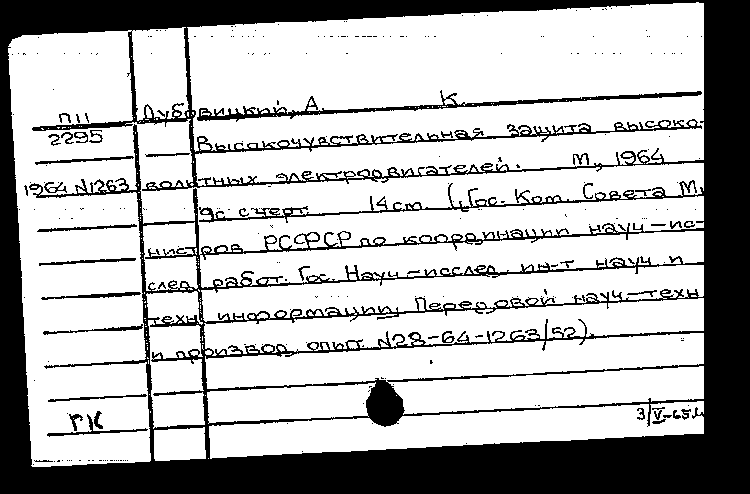 П11 Дубовицкий, А. К.
2295 Высокочувствительная защита высоко-
1964 N1263 вольтных электродвигателей. М., 1964
9с с черт. 14см. (Гос. Ком. Совета Ми
нистров РСФСР по координации науч-ис-
след. работ. Гос. Науч-исслед. ин-т науч и
техн. информации, Передовой науч-техн
и производ. опыт N28-64-1263/52).
РК 3/V-65г